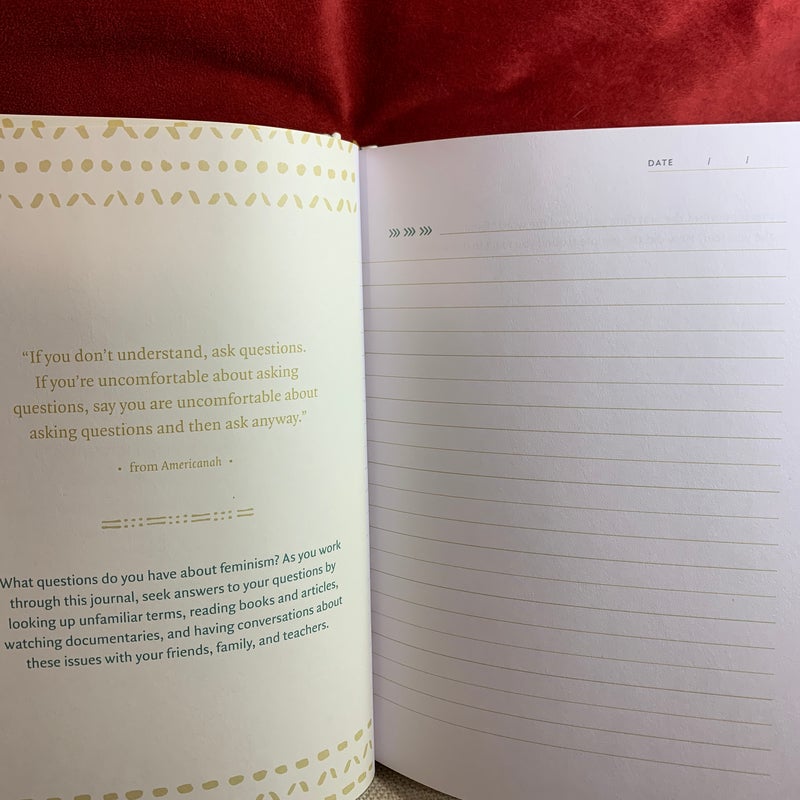 “If you don’t understand, ask questions.
If you’re uncomfortable about asking
questions, say you are uncomfortable about
asking questions and then ask anyway.”
• from Americanah •
What questions do you have about feminism? As you work
through this journal, seek answers to your questions by
looking up unfamiliar terms, reading books and articles,
watching documentaries, and having conversations about
these issues with your friends, family, and teachers.
DATE / /